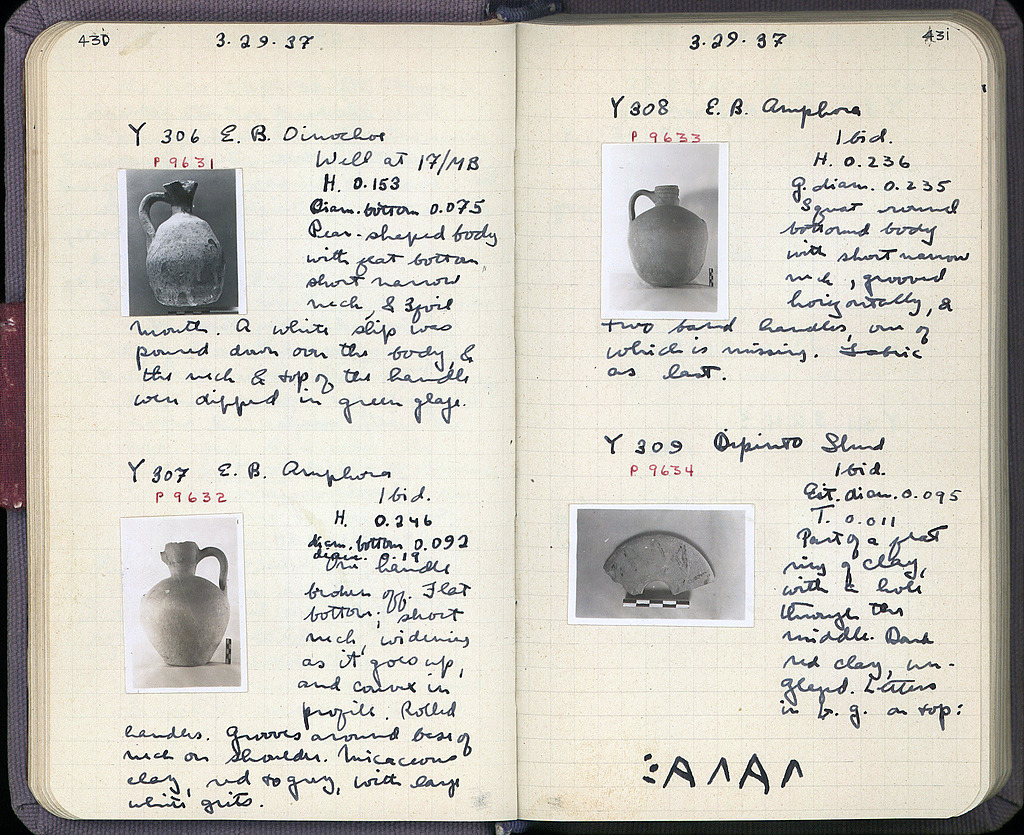 430
3.29.37
Y 306 E. B. Oinochoe
P 9631
Well at 17/MB
H. 0.153
Diam. bottom 0.075
Pear-shaped body
with flat bottom
short narrow
neck, & 3foil
mouth. A white slip was
poured down over the body, &
the neck & top of the handle
were dipped in green glaze.
Y 307 E. B. Amphora
P 9632
Ibid.
H. 0.246
diam. bottom 0.092
diam. 0.19
One handle
broken off. Flat
bottom, short
neck, widening
as it goes up,
and convex in
profile. Rolled
handles. Grooves around base of
neck on shoulder. Micaceous
clay, red to grey, with large
white grits.
3.29.37
431
Y 308 E. B. Amphora
P 9633
Ibid.
H. 0.236
g. diam. 0.235
Squat round
bottomed body
with short narrow
neck, grooved
horizontally, &
two band handles, one of
which is missing. Fabric
as last.
Y 309 Dipinto Sherd
P 9634
Ibid.
Est. diam. 0.095
T. 0.011
Part of a flat
ring of clay,
with a hole
through the
middle. Dark
red clay, un-
glazed. Letters
in b. g. on top:
:ΑΛΑΛ